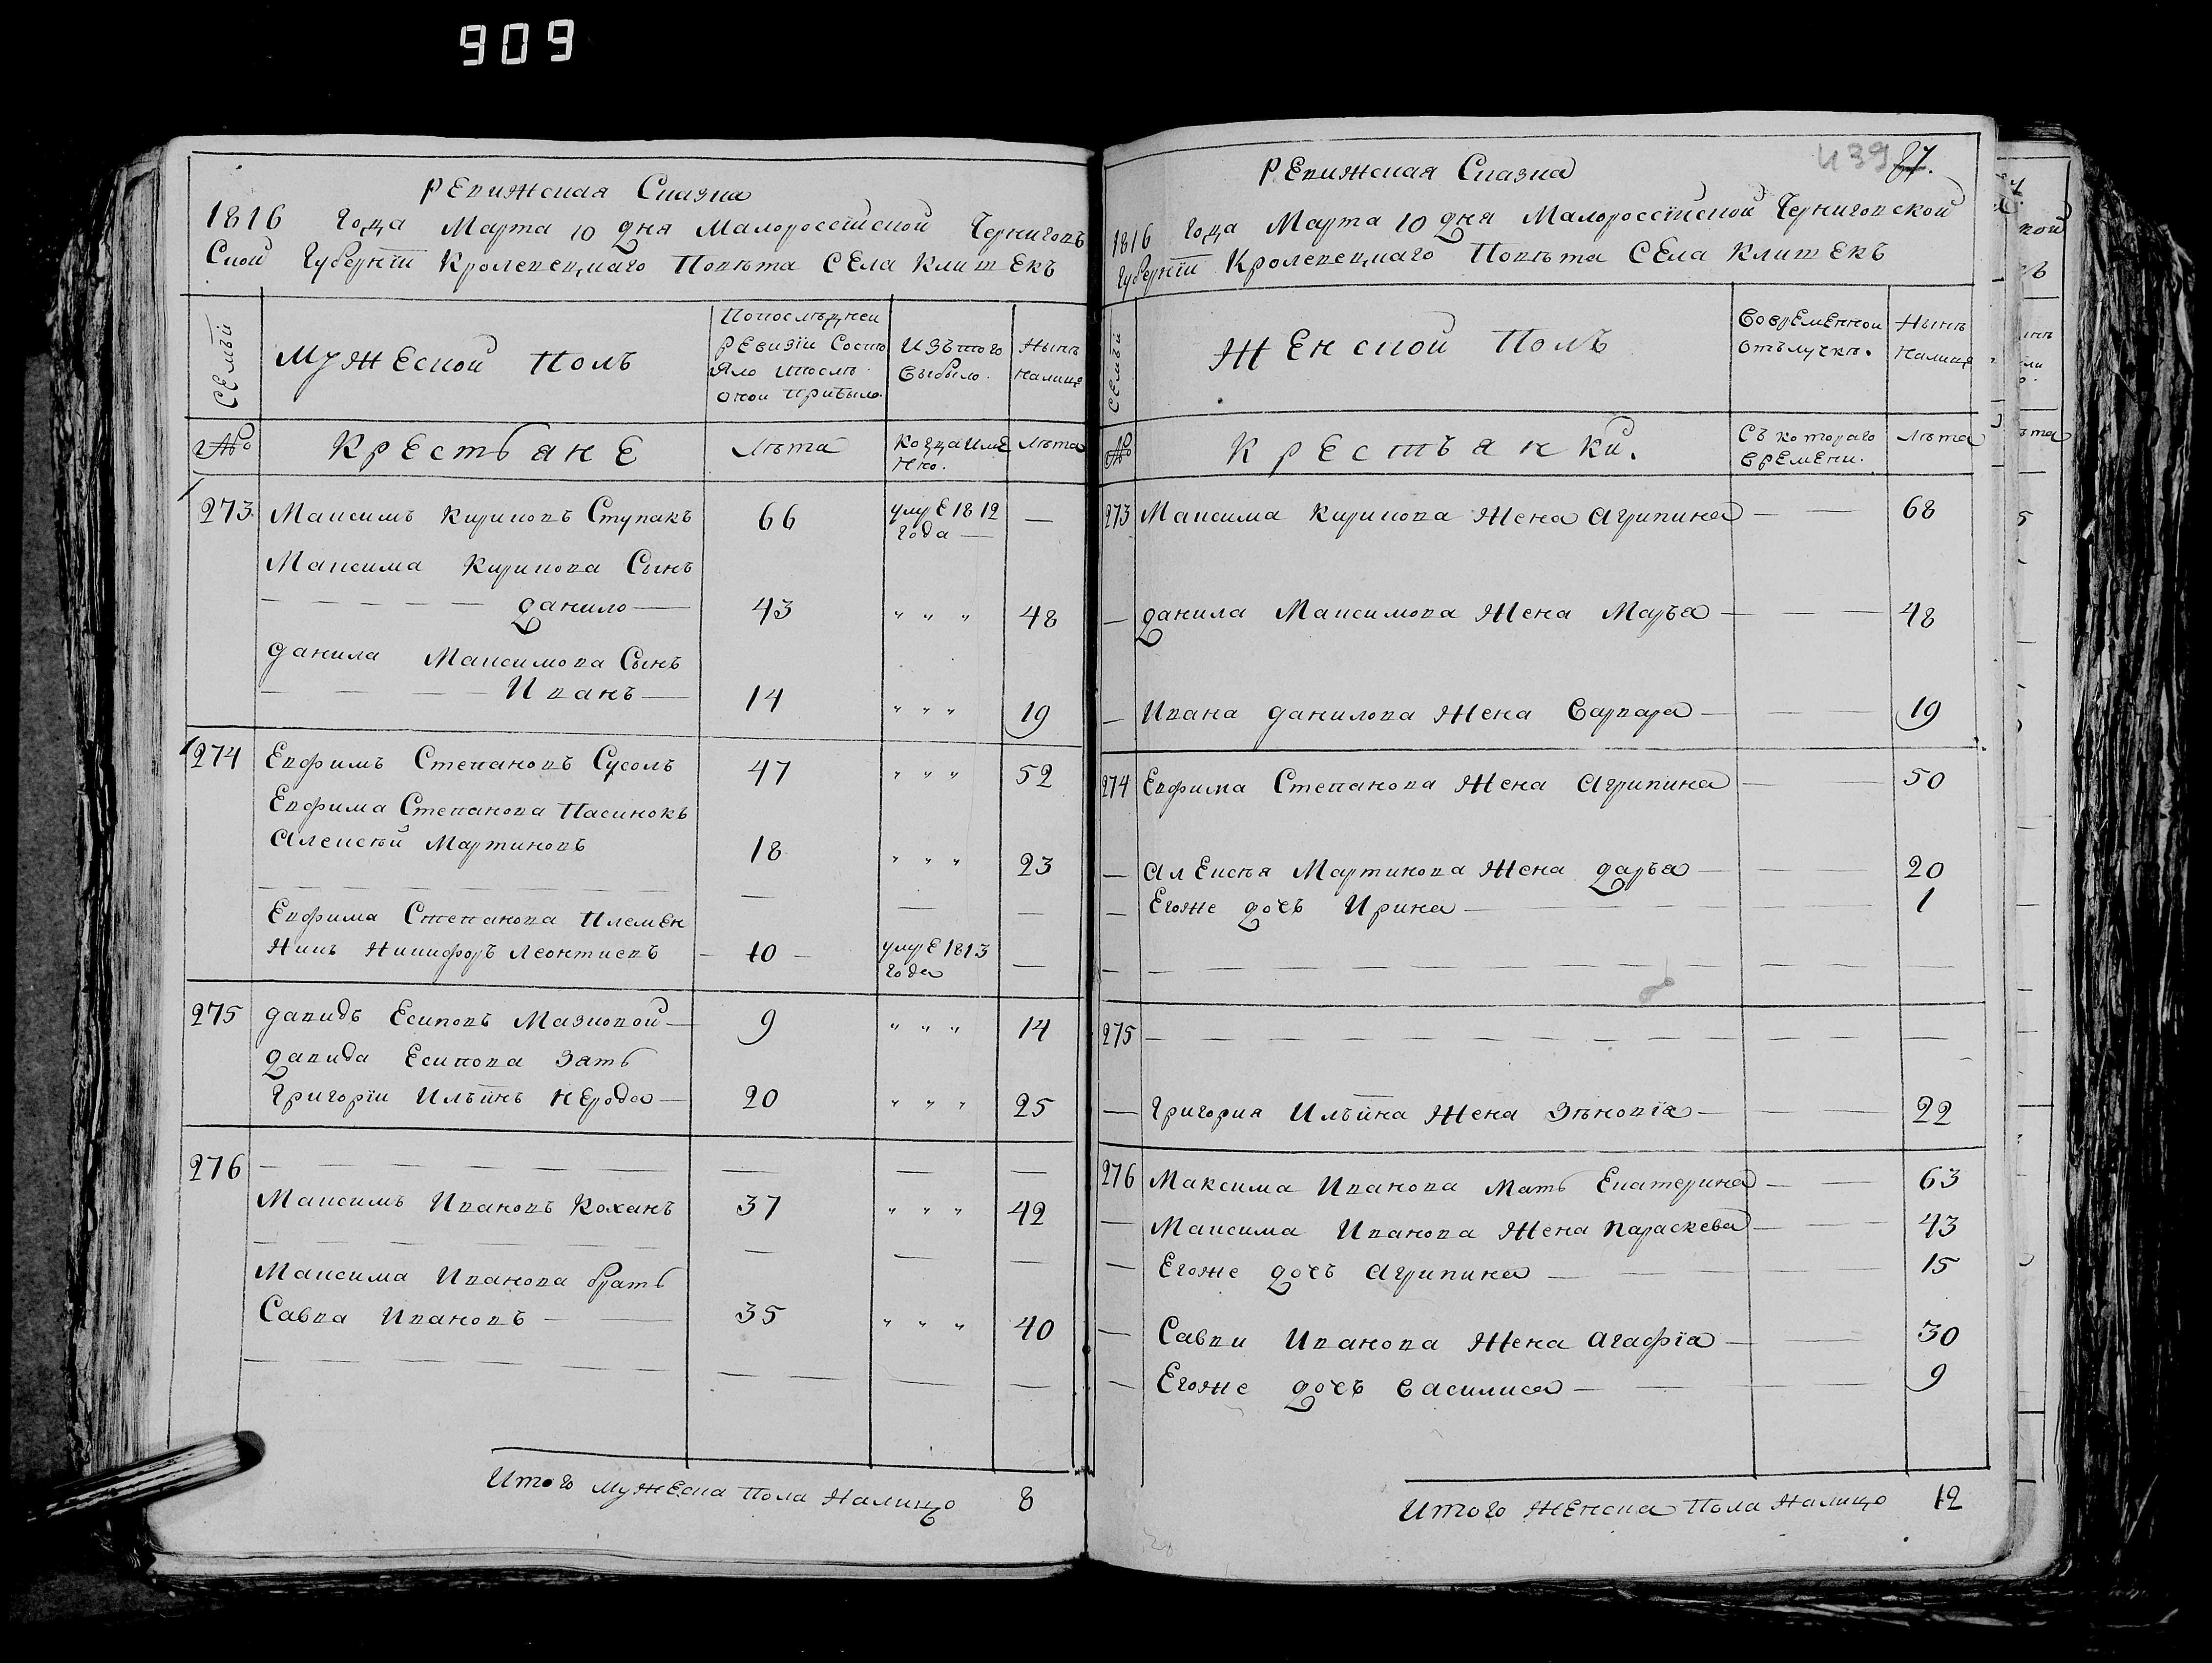 909
РЕвижская Сказка
1816 Года Марта 10 дня Малоросссiйской Черниговъ
Ской Губернiи Кролевецкаго Повѣта СЕла КлишЕкъ
СЕмъи
МужЕской полъ
Попослѣдней
РЕвизiи Состо
Яло ипослѣ
оной прибыло.
Изътого
Выбыло.
Нынѣ
налицо
№
КрЕстьянЕ
Лѣта
КогдаимЕ
нно.
Лѣта
273 Максимъ Кириковъ Ступакъ 66 умрЕ 1812 —
Года —
Максима Кирикова Сынъ
— — — — — данило — 43 " " " 48
данила Максимова Сынъ
— — — — Иванъ — 14 " " " 19
274 Евфимъ Степановъ Сусолъ 47 " " " 52
Евфима Степанова Пасинокъ
Алексѣй Мартиновъ 18 " " " 23
— — — — — — — — —
Евфима Степанова ПлемЕн
никъ Никифоръ Леонтиевъ - 10 - умрЕ 1813 —
года
275 давидъ Есиповъ Мазковой — 9 " " " 14
давида Есипова Зять
Григорiи Ильинъ нЕрода — 20 " " " 25
276 — — — — — — — — —
Максимъ Ивановъ Коханъ 37 " " " 42
— — — — — — — — —
Максима Иванова братъ
Савва Ивановъ — — 35 " " " 40
— — — — — — — — — —
Итого мужЕска пола налицо 8
439 87.
РЕвижская Сказка
1816 Года Марта 10 дня Малороссiйской Черниговской
Губернiи Кролевецкаго Повѣта СЕла КлишЕкъ
СЕмъи
ЖЕнской Полъ
ВоврЕмЕнной
отълучкѣ.
Нынѣ
налицо
№
КрЕстъянки.
Съ котораго
врЕмЕни.
Лѣта
273 Максима Кирикова Жена Агрипина — — 68
— данила Максимова Жена Маръа — — — 48
— Ивана данилова Жена Варвара — — 19
274 Евфима Степанова Жена Агрипина — — 50
— АлЕксѣя Мартинова Жена даръа — — — 20
— Егоже дочъ Ирина — — — — 1
— — — — — — — — — — — —
275 — — — — — — — — — — — —
— Григория Ильина Жена Зѣновiа — — 22
276 Максима Иванова Мать Екатерина — — 63
— Максима Иванова Жена Параскева — — — 43
— Егоже дочъ Агрипина — — — 15
— Савки Иванова Жена Агафiа — — 30
— Егоже дочъ Василиса — — — 9
Итого жЕнска Пола налицо 12